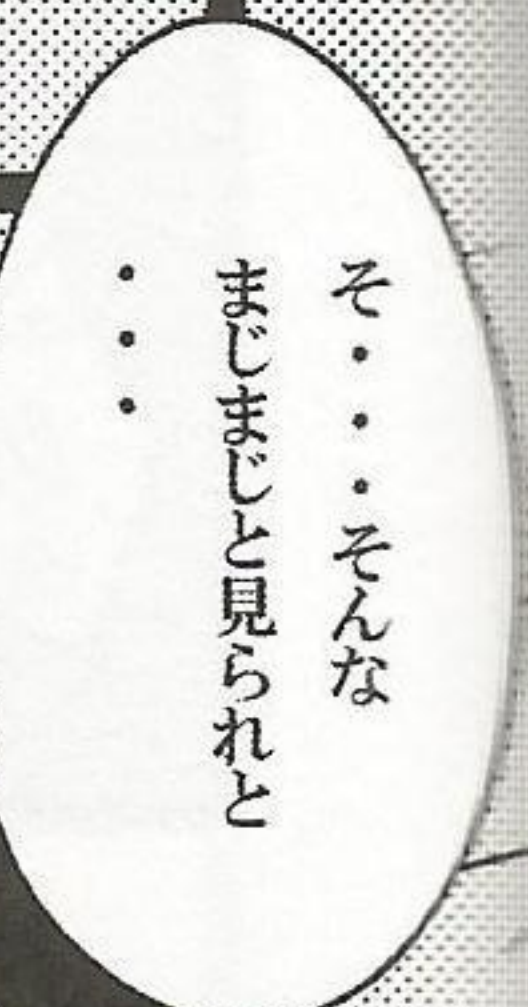 そ・・・そんな
まじまじと見られと
・・・